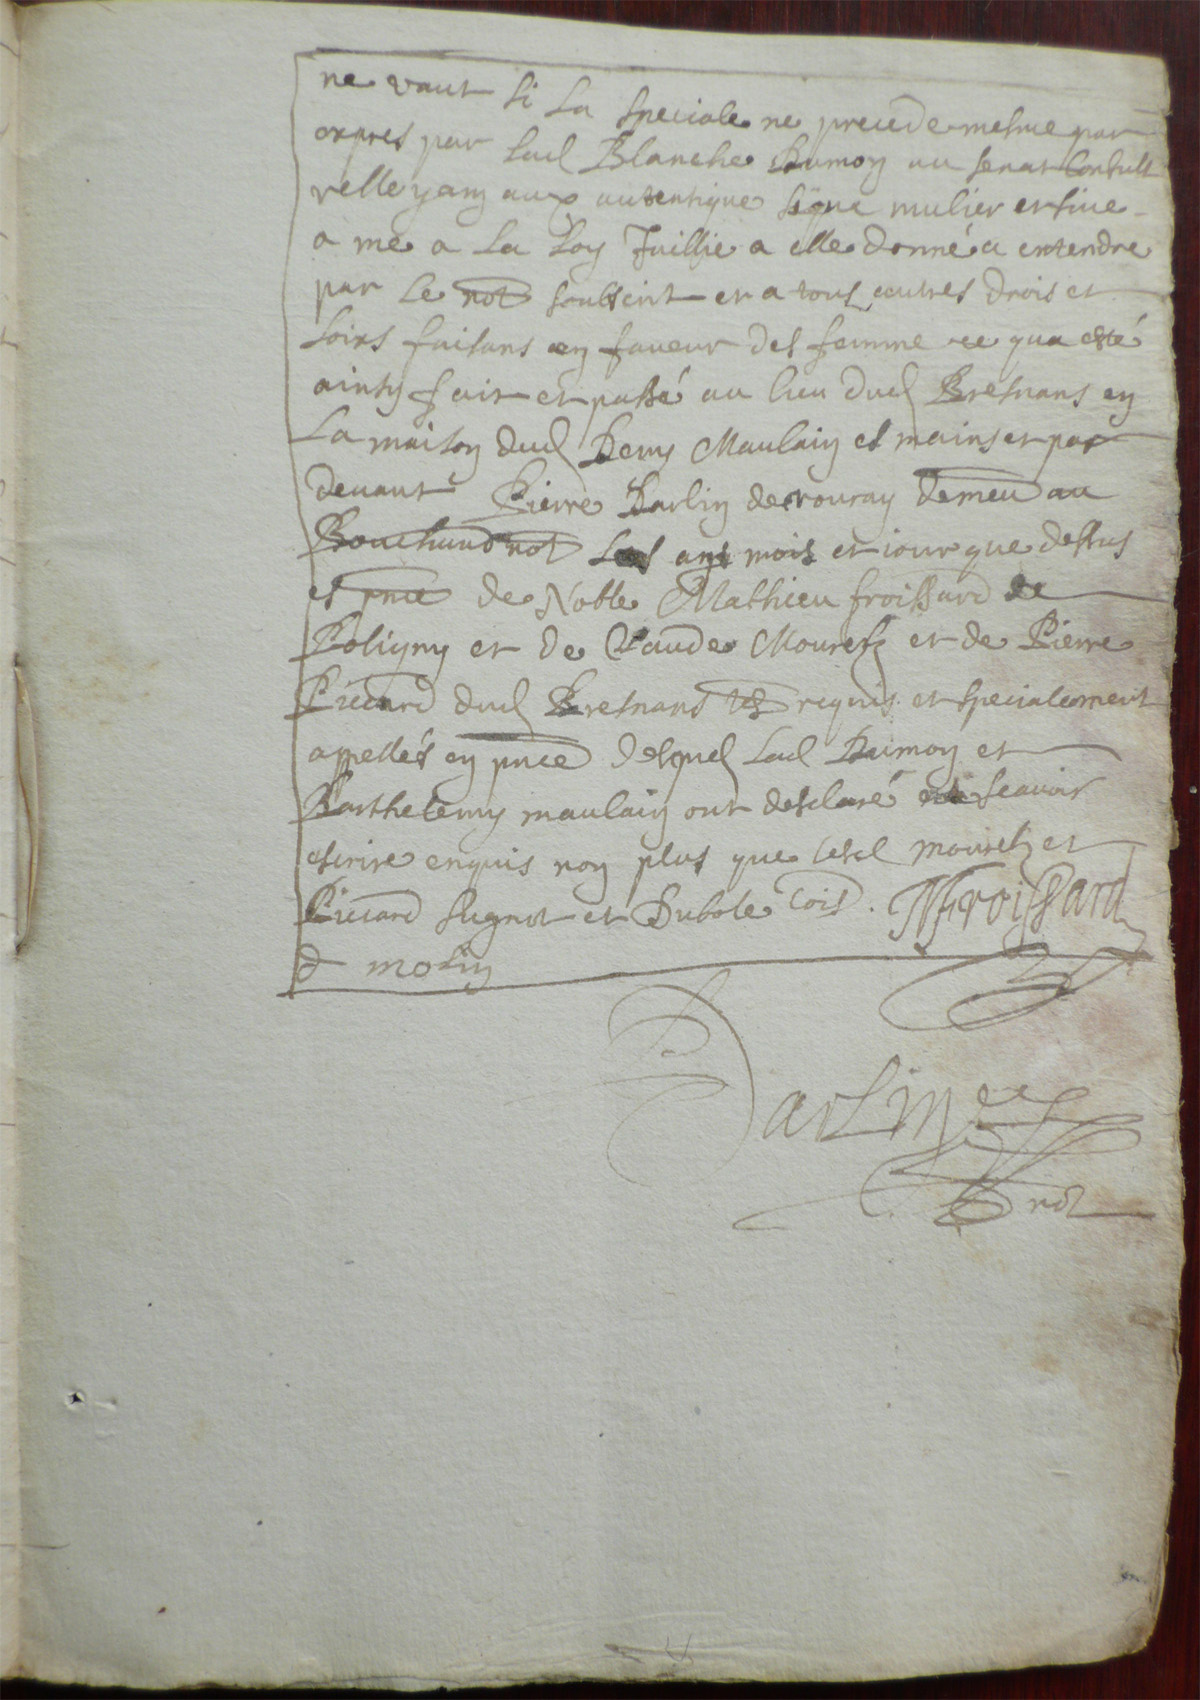 ne vaut si la speciale ne precede mesme par
expres par lad Blanche Dumon au senat Consult
velleyan aux autentique siqua mulier et sive
a me a la loy Juillie a elle donné a entendre
par le not soubscrit et a tous autres drois et
loirs faisans en faveur des femme ce qua esté
ainsy fait et passé au lieu dud Bresnans en
la maison dud Denis Maulain es mains et par
devant Pierre Darlin de vouray demeu au
Bouchaud not les ans mois et iour que dessus
es pnce de Noble Mathieu froissard de
Poligny et de Claude Mouretz et de Pierre
Picard dud Bresnans tes requis et specialement
appellés en pnce desquel lad Dumon et
Barthelemy maulain ont desclaré scavoir
escrire enquis non plus que lesd mouretz et
Picard signot et Dubole. Froissard
D molin
Darlin
not